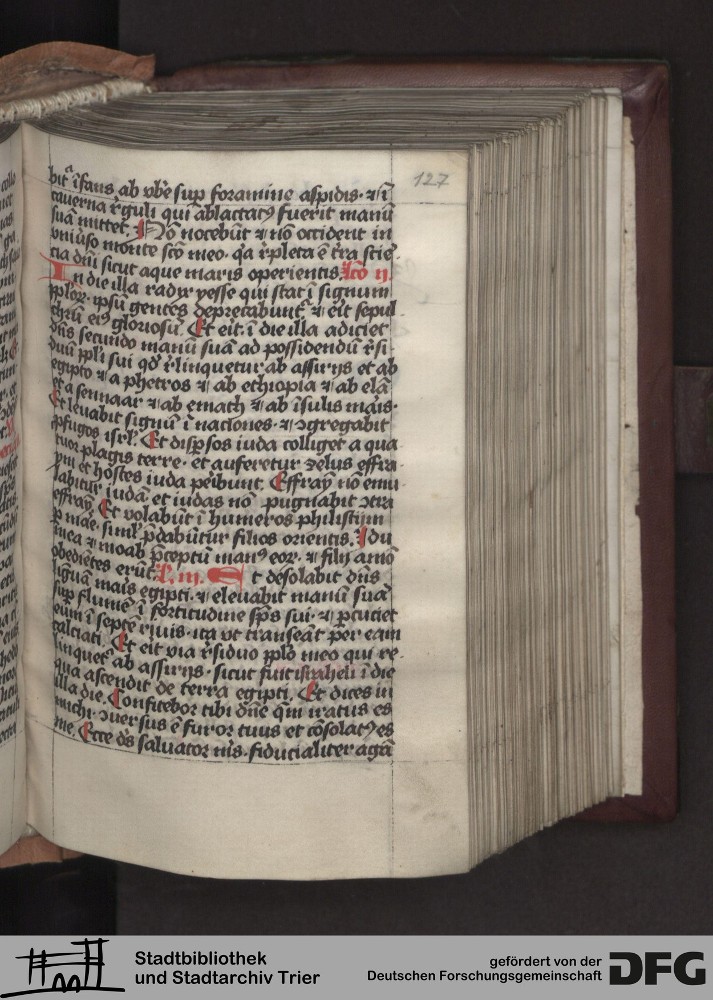 127
bit ifans ab vbe sup foramine aspidis · ⁊ ī
cauerna r̄guli qui ablactatꝰ fuerit manū
suā mittet. Nō nocebūt ⁊ nō occident in
vniuˀso monte scō meo · qꝛ r̄pleta ē tˀra scie
cia dn̄i sicut aque maris operientis. lc̄o ij.
In die illa radix yesse qui stat ī signum
pplor̄ · ipsū gentes deprecabunt᷑ ⁊ eˀit sepul
chrū eiꝰ gloriosū. Et eˀit · ī die illa adiciet
dn̄s secundo manū suā ad possidendū r̄si-
duū ppl̓i sui qd̓ r̄linquetur ab assirijs et ab
egipto ⁊ a phetros ⁊ ab ethiopia ⁊ ab elā
et a sennaar ⁊ ab emath ⁊ ab īsulis maˀis ·
Et leuabit signū ī naciones · ⁊ ɔgregabit
ꝓfugos isrl̓. Et dispˀsos iuda colliget a qua
tuor plagis terre · et auferetur zelus effra-
ym et hostes iuda peˀibunt. Effraȳ nō emu
labitur iudā et iudas nō pugnabit ɔtra
effraȳ. Et volabūt ī humeros philistijm
ꝑ mae · siml̓ p̄dabūtur filios orientis. Idu
mea ⁊ moab p̄ceptū manꝰ eoꝝ · ⁊ filij amō
obediētes erūt. L. iij. Et desolabit dn̄s
liguā maˀis egipti · ⁊ eleuabit manū suā
sup flumē ī fortitudine sp̄s sui · ⁊ ꝑcuciet
eum ī septē riuis · ita vt transeāt per eum
calciati. Et eˀit via r̄siduo ppl̓o meo qui re-
linquet᷑ ab assirijs · sicut fuit israheli ī die
qua ascendit de terra egipti. Et dices in
illa die. Confitebor tibi dn̄e qm̄ iratus es
michi · ɔuersus ē furor tuus et cōsolatꝰ es
me. Ecce ds̄ saluator mˀs · fiducialiter agā
Stadtbibliothek
und Stadtarchiv Trier
gefördert von der
Deutschen Forschungsgemeinschaft DFG